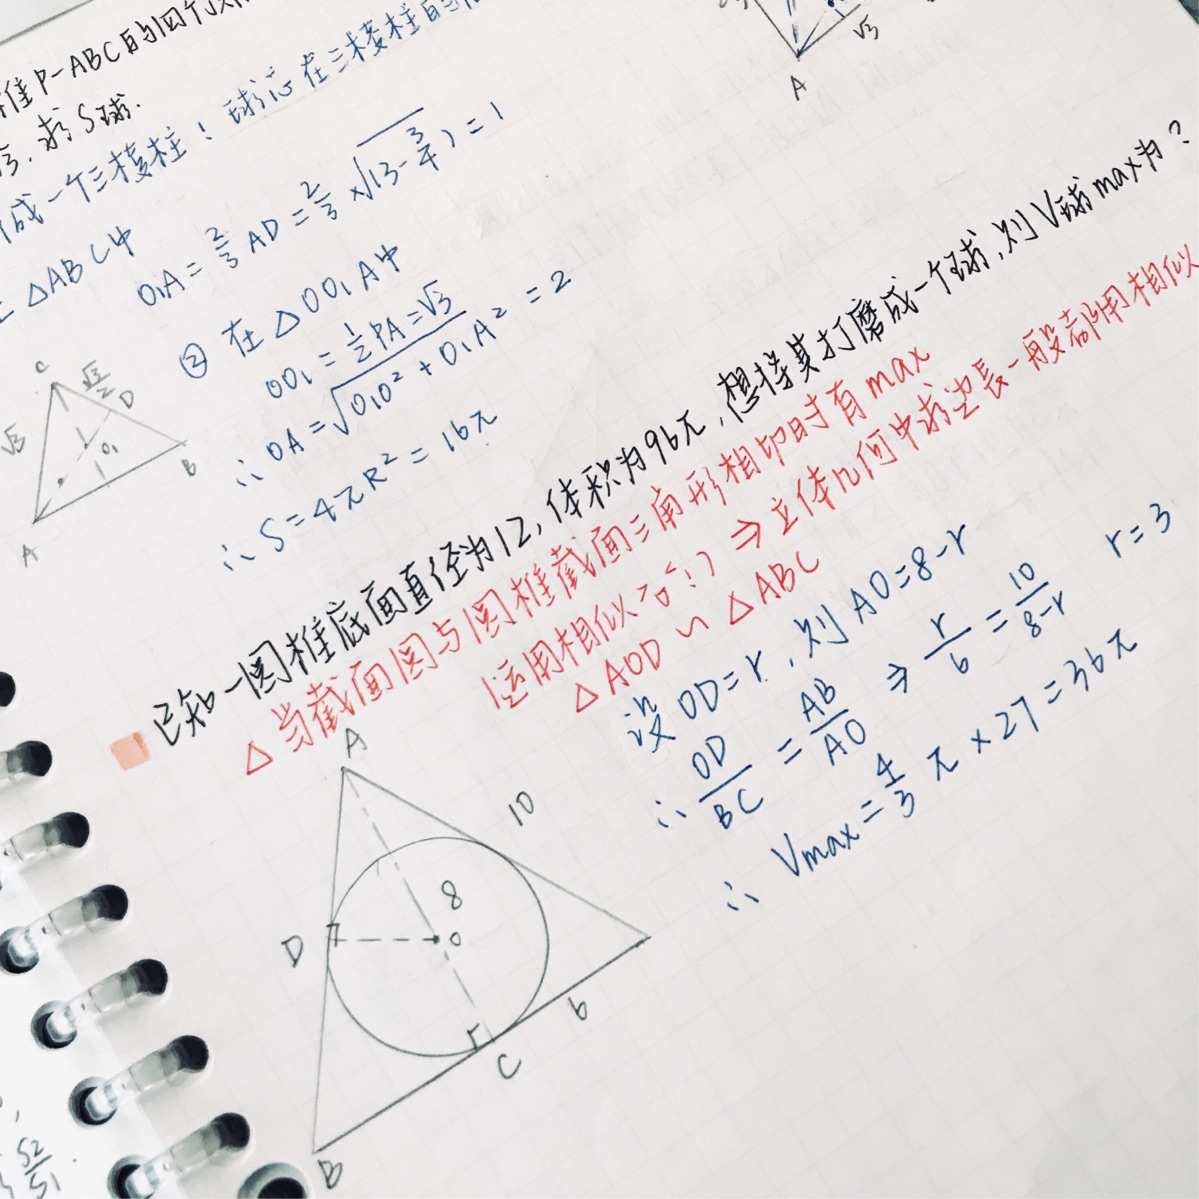 锥P-ABC的四个
求S球.
成一个三棱柱! 球心在三棱柱的
△ABC中
O₁A=2/3 AD=2/3×√(3-3/4)=1
② 在△OO₁A中
OO₁=1/2PA=√3
∴OA=√(O₁O²+O₁A²)=2
∴S=4πR²=16π
C
√3/2
D
√3
O₁
1
B
A
√3
A
已知一圆锥底面直径为12,体积为96π,想将其打磨成一个球,则V球max为?
△当截面圆与圆锥截面三角形相切时有max
运用相似哈!! ⇒ 立体几何中求边长一般都用相似
△AOD∽△ABC
设OD=r,则AO=8-r
∴OD/BC=AB/AO ⇒ r/6=10/(8-r) r=3
∴Vmax=4/3π×27=36π
A
10
8
D
O
r
6
C
B
S2/S1